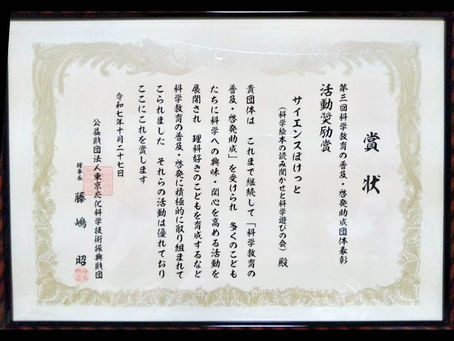 賞状
第三回科学教育の普及・啓発助成団体表彰
活動奨励賞
サイエンスぽけっと
(科学絵本の読み聞かせと科学遊びの会) 殿
貴団体は これまで継続して「科学教育の
普及・啓発助成」を受けられ 多くのこども
たちに科学への興味・関心を高める活動を
展開され 理科好きのこどもを育成するなど
科学教育の普及・啓発に積極的に取り組まれて
こられました それらの活動は優れており
ここにこれを賞します
令和七年十月二十七日
公益財団法人東京応化科学技術振興財団
理事長 藤嶋 昭